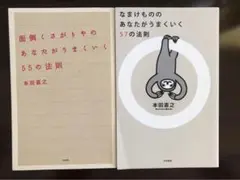 面倒くさがりやの
あなたがうまくいく
55の法則
本田直之
なまけものの
あなたがうまくいく
57の法則
本田直之
大和書房